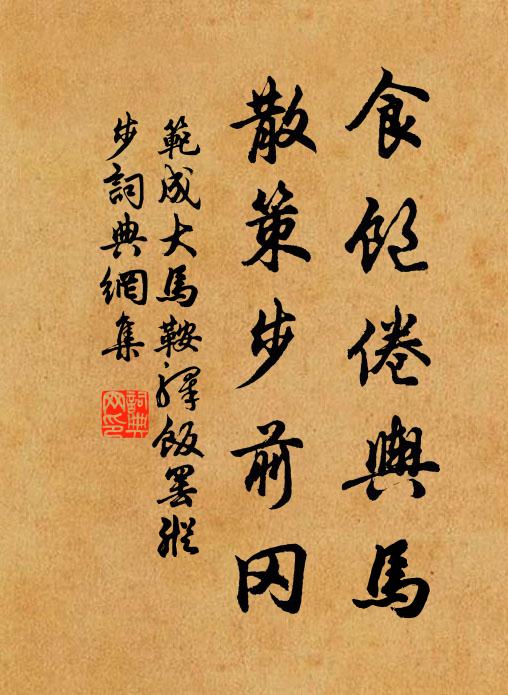 食飽倦輿馬
散策步前冈
範成大馬鞍驛飯罷縱
步詞典網集
詞典
网印